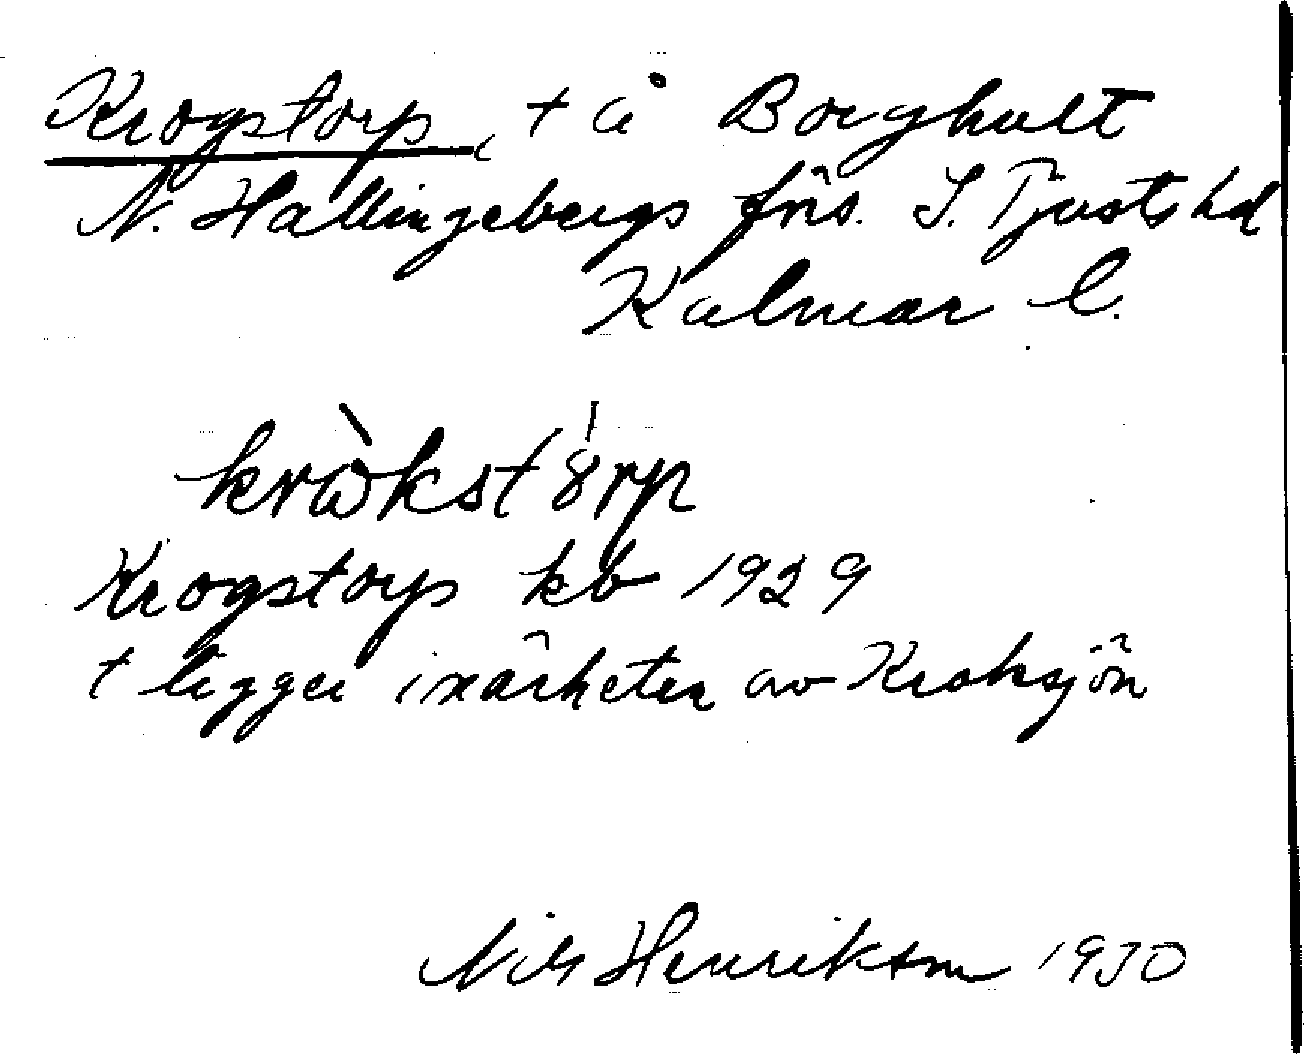 Krogstorp, t å Borghult
N. Hallingebergs frns. S. Tjusts hd
Kalmar l.
kràkst
Krogstorp kb 1929
t ligger i närheten av Kroksjön
Nils Henrikson 1930